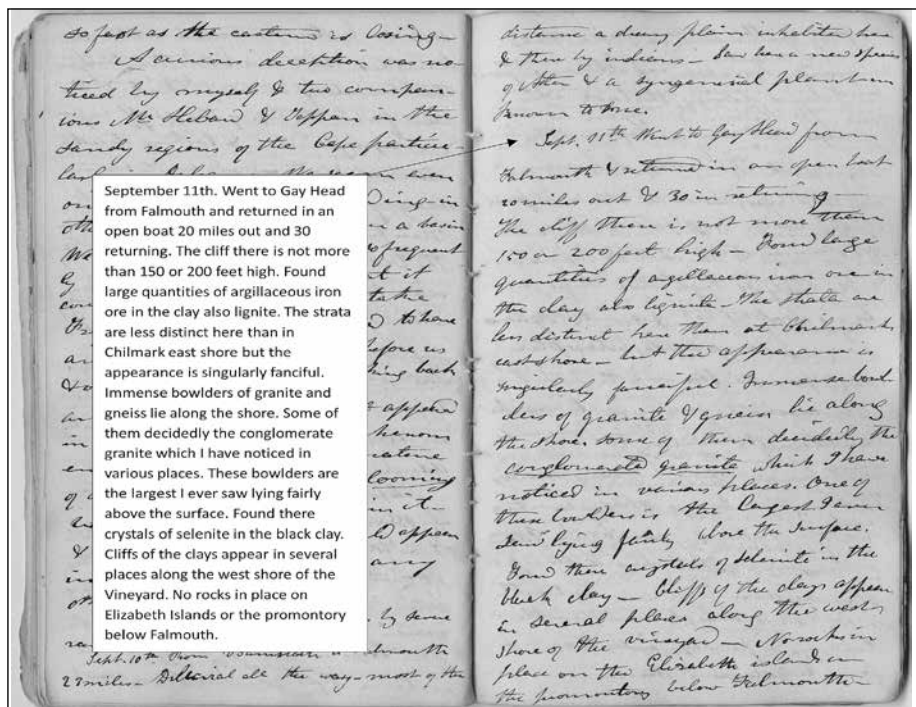 so fast as the eastern is losing —
A curious deception was no-
ticed by myself & two compan-
ions Mr. & Tappan in the
sandy regions of the Cape
September 11th. Went to Gay Head
from Falmouth and returned in an
open boat 20 miles out and 30
returning. The cliff there is not more
than 150 or 200 feet high. Found
large quantities of argillaceous iron
ore in the clay also lignite. The strata
are less distinct here than in
Chilmark east shore but the
appearance is singularly fanciful.
Immense bowlders of granite and
gneiss lie along the shore. Some of
them decidedly the conglomerate
granite which I have noticed in
various places. These bowlders are
the largest I ever saw lying fairly
above the surface. Found there
crystals of selenite in the black clay.
Cliffs of the clays appear in several
places along the west shore of the
Vineyard. No rocks in place on
Elizabeth Islands or the promontory
below Falmouth.
even
in a basin
frequent
it
to have
before us
back
appeared
looming
in it
appear
any
by some
Sept. 10th From to Falmouth
23 miles — all the way — most of the
distance a dreary plain inhabited here
& there by indians — Saw here a new species
of Aster & a syngenesial plant un
known to me.
Sept. 11th Went to Gay Head from
Falmouth & returned in an open boat
20 miles out & 30 in returning —
The cliff there is not more than
150 or 200 feet high — Found large
quantities of argillaceous iron ore in
the clay also lignite — The strata are
less distinct here than at Chilmark
east shore — but the appearance is
singularly fanciful. Immense bowl-
ders of granite & gneiss lie along
the shore. Some of them decidedly the
conglomerated granite which I have
noticed in various places. One of
these bowlders is the largest I ever
saw lying fairly above the surface.
Found there crystals of selenite in the
black clay — Cliffs of the clays appear
in several places along the west
shore of the vineyard — No rocks in
place on the Elizabeth islands or
the promontory below Falmouth —